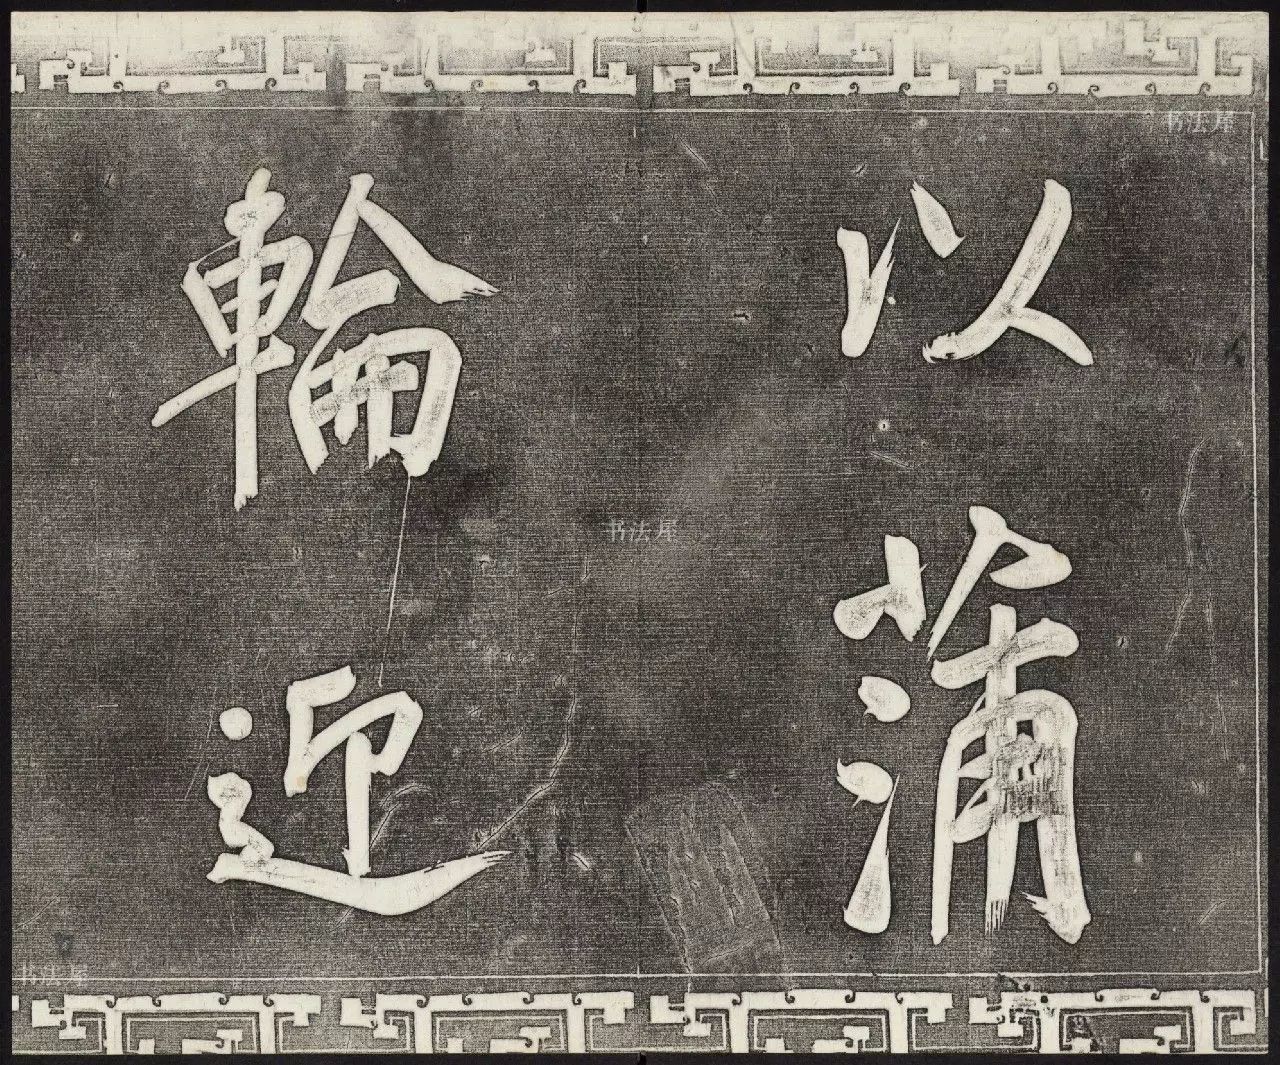 以蒲
輪迎
书法屋
书法屋
书法屋